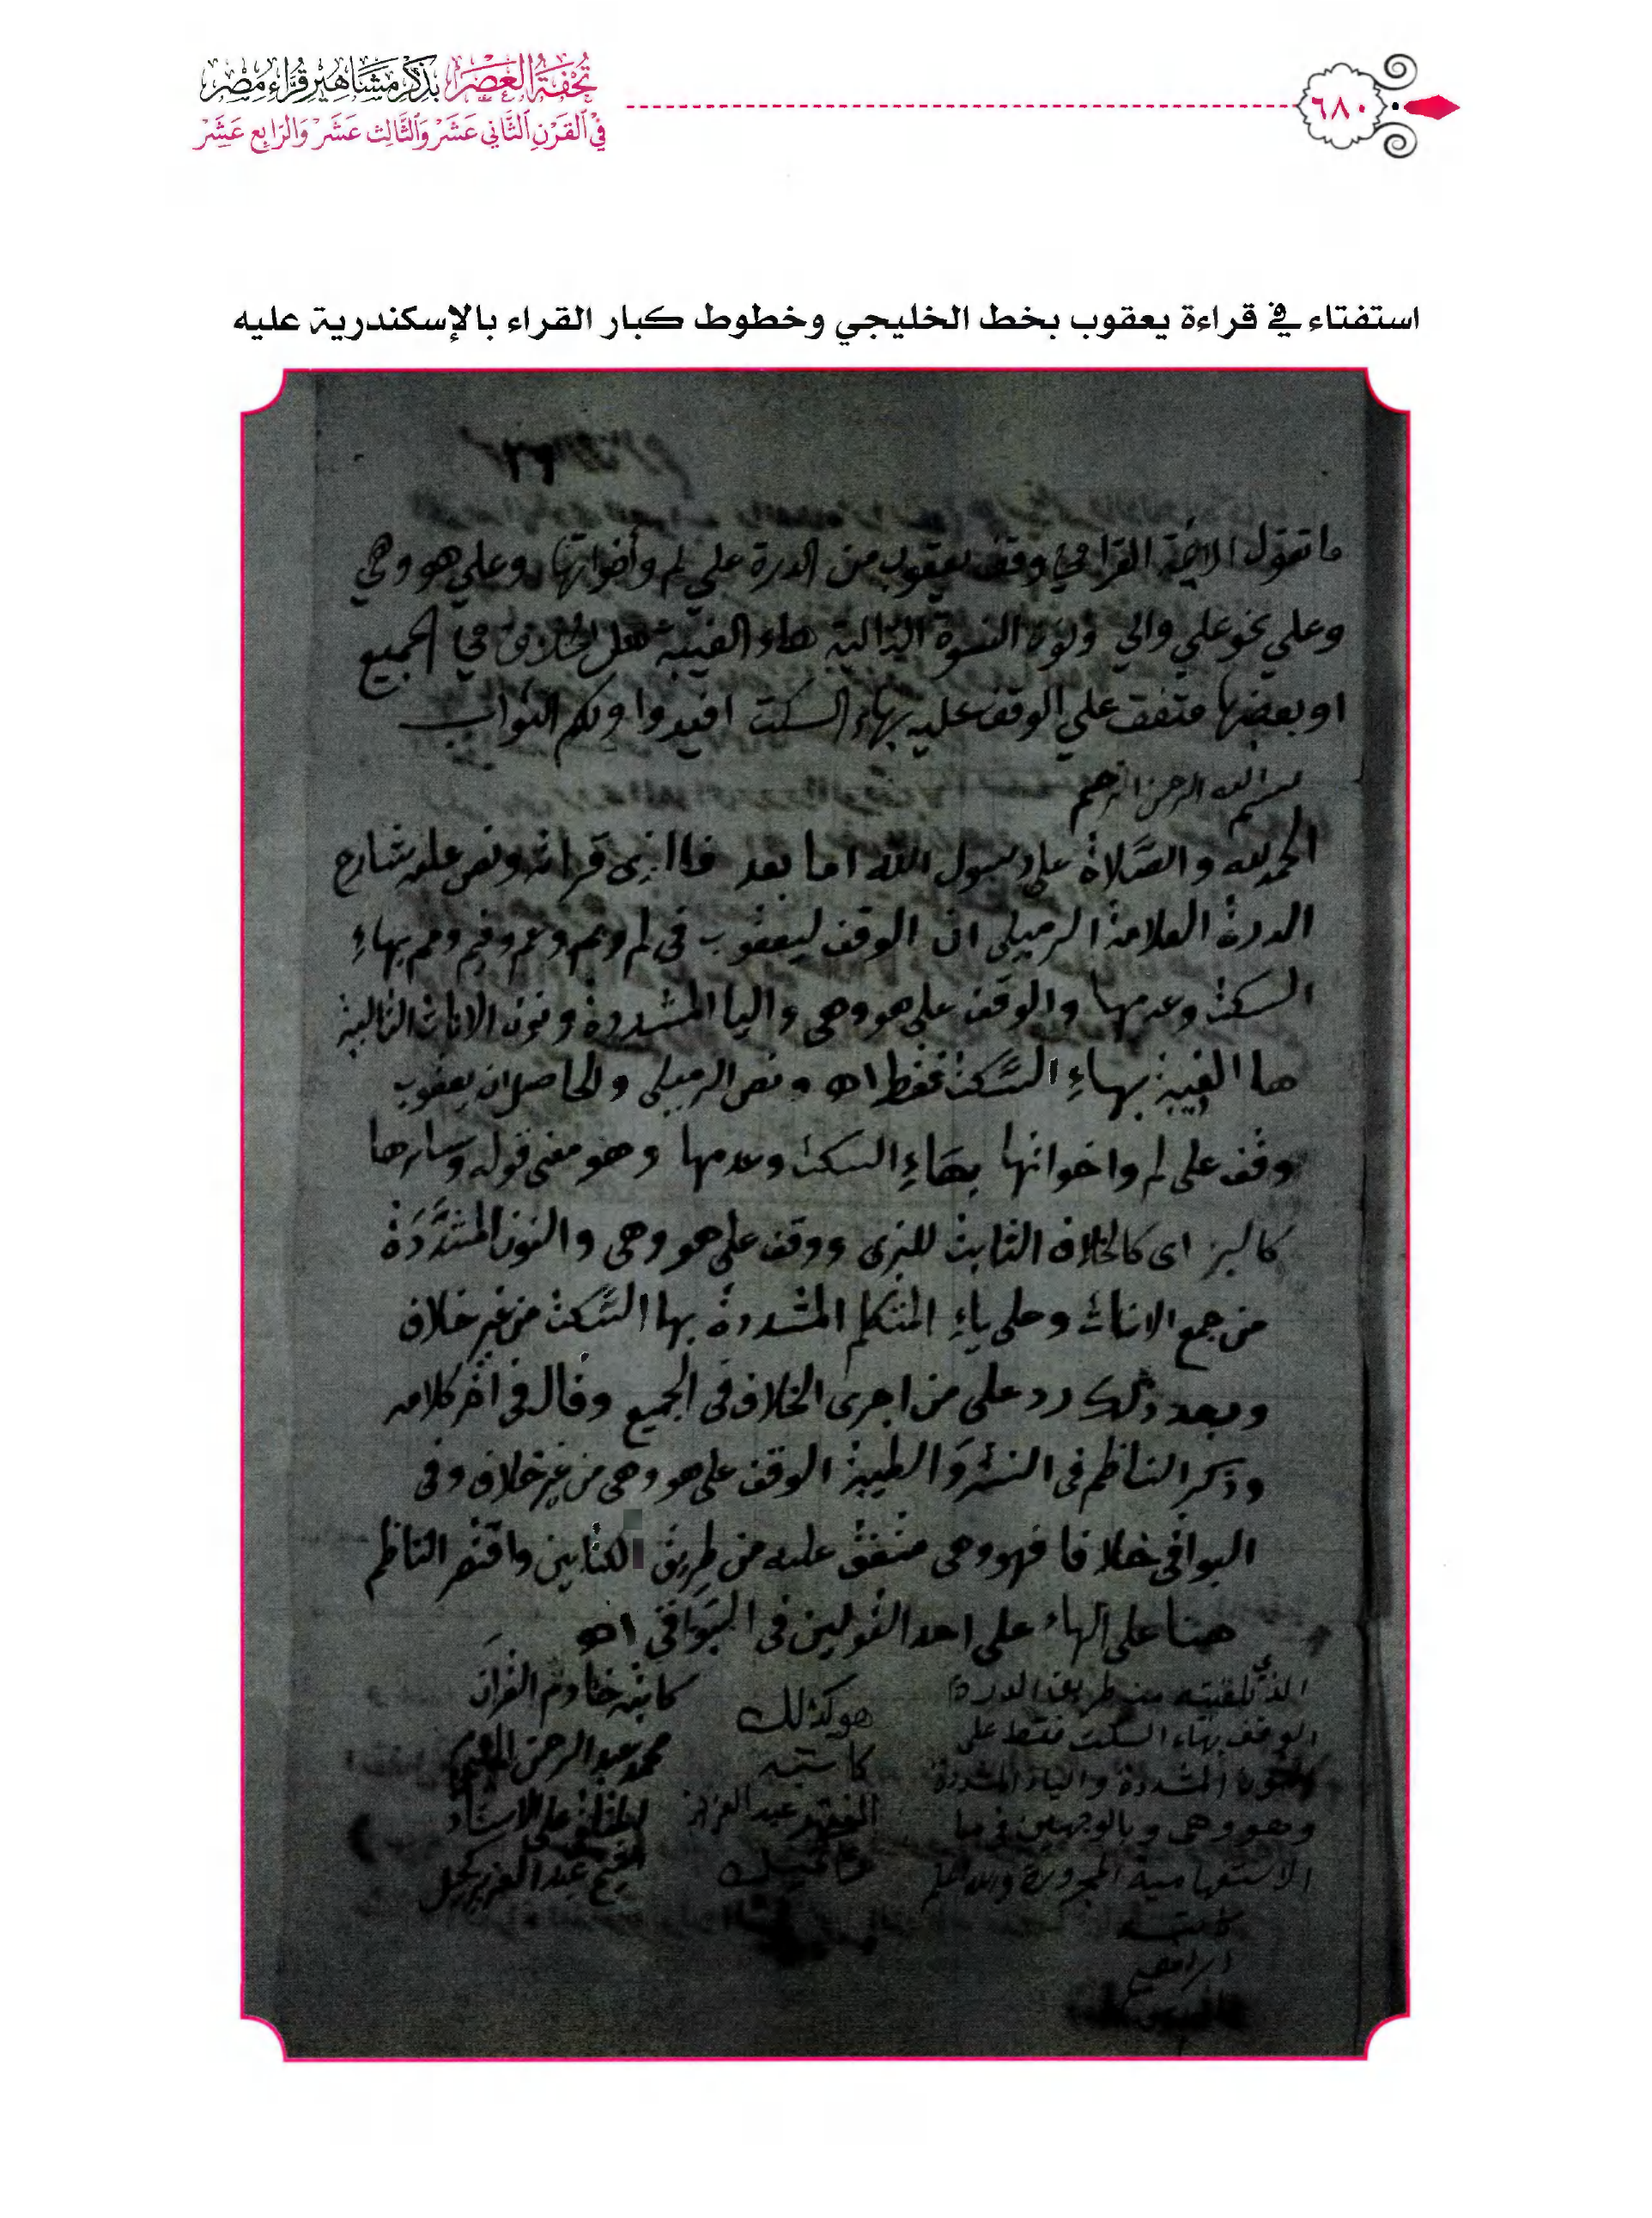 ٦٨٠
تُحْفَةُ الْعَصْرِ بِذِكْرِ مَشَاهِيرِ قُرَّاءِ مِصْرَ
فِي الْقَرْنِ الثَّانِي عَشَرَ وَالثَّالِث عَشَرَ وَالرَّابِع عَشَرَ
استفتاء في قراءة يعقوب بخط الخليجي وخطوط كبار القراء بالإسكندرية عليه
ما تقول الائمة القرا في وقف يعقوب من الدرة علي لم وأخواتها وعلي هو وهي
وعلي نحو علي والي ونون النسوة التالية هاء الغيبة هل الخلاف في الجميع
او بعضها متفق علي الوقف عليه بهاء السكت افيدوا ولكم الثواب
بسم الله الرحمن الرحيم
الحمد لله والصَّلاة على رسول الله اما بعد فاالذى قرأته ونص عليه شارح
الدرة العلامة الرميلى ان الوقف ليعقوب فى لم وبم وعم وفيم ومم بهاءِ
السكت وعدمها والوقف على هو وهى واليا المشددة ونون الاناث التالية
ها الغيبة بهاءِ السَّكت فقط اهـ ونص الرميلى والحاصل ان يعقوب
وقف على لم واخواتها بهَاءِ السكت وعدمها وهو معنى قوله وسارها
كالبز اى كالخلاف الثابت للبزى ووقف على هو وهى والنون المشَدَّدَة
من جمع الاناث وعلى ياءِ المتكلم المشددة بها السَّكت من غير خلاف
وبعد ذلك رد على من اجرى الخلاف فى الجميع وقال فى اخر كلامه
وذكر الناظم فى النشر وَالطيبة الوقف على هو وهى من غير خلاف وفى
البواقى خلافا فهو وهى متفق عليه من طريق الكتابين واقتصر الناظم
هنا على الهاء على احد القولين فى البَوَاقى اهـ
الذي تلقيته من طريق الدرة
الوقف بهاء السكت فقط على
النون المشددة والياء المشددة
وهو وهى وبالوجهين في ما
الاستفهامية المجرورة والله اعلم
كاتبه
ابراهيم
هو كذلك
كاتبه
الفقير عبد العزيز
كاتبه خادم القرآن
محمد عبد الرحمن
الشيخ عبد العزيز كحيل